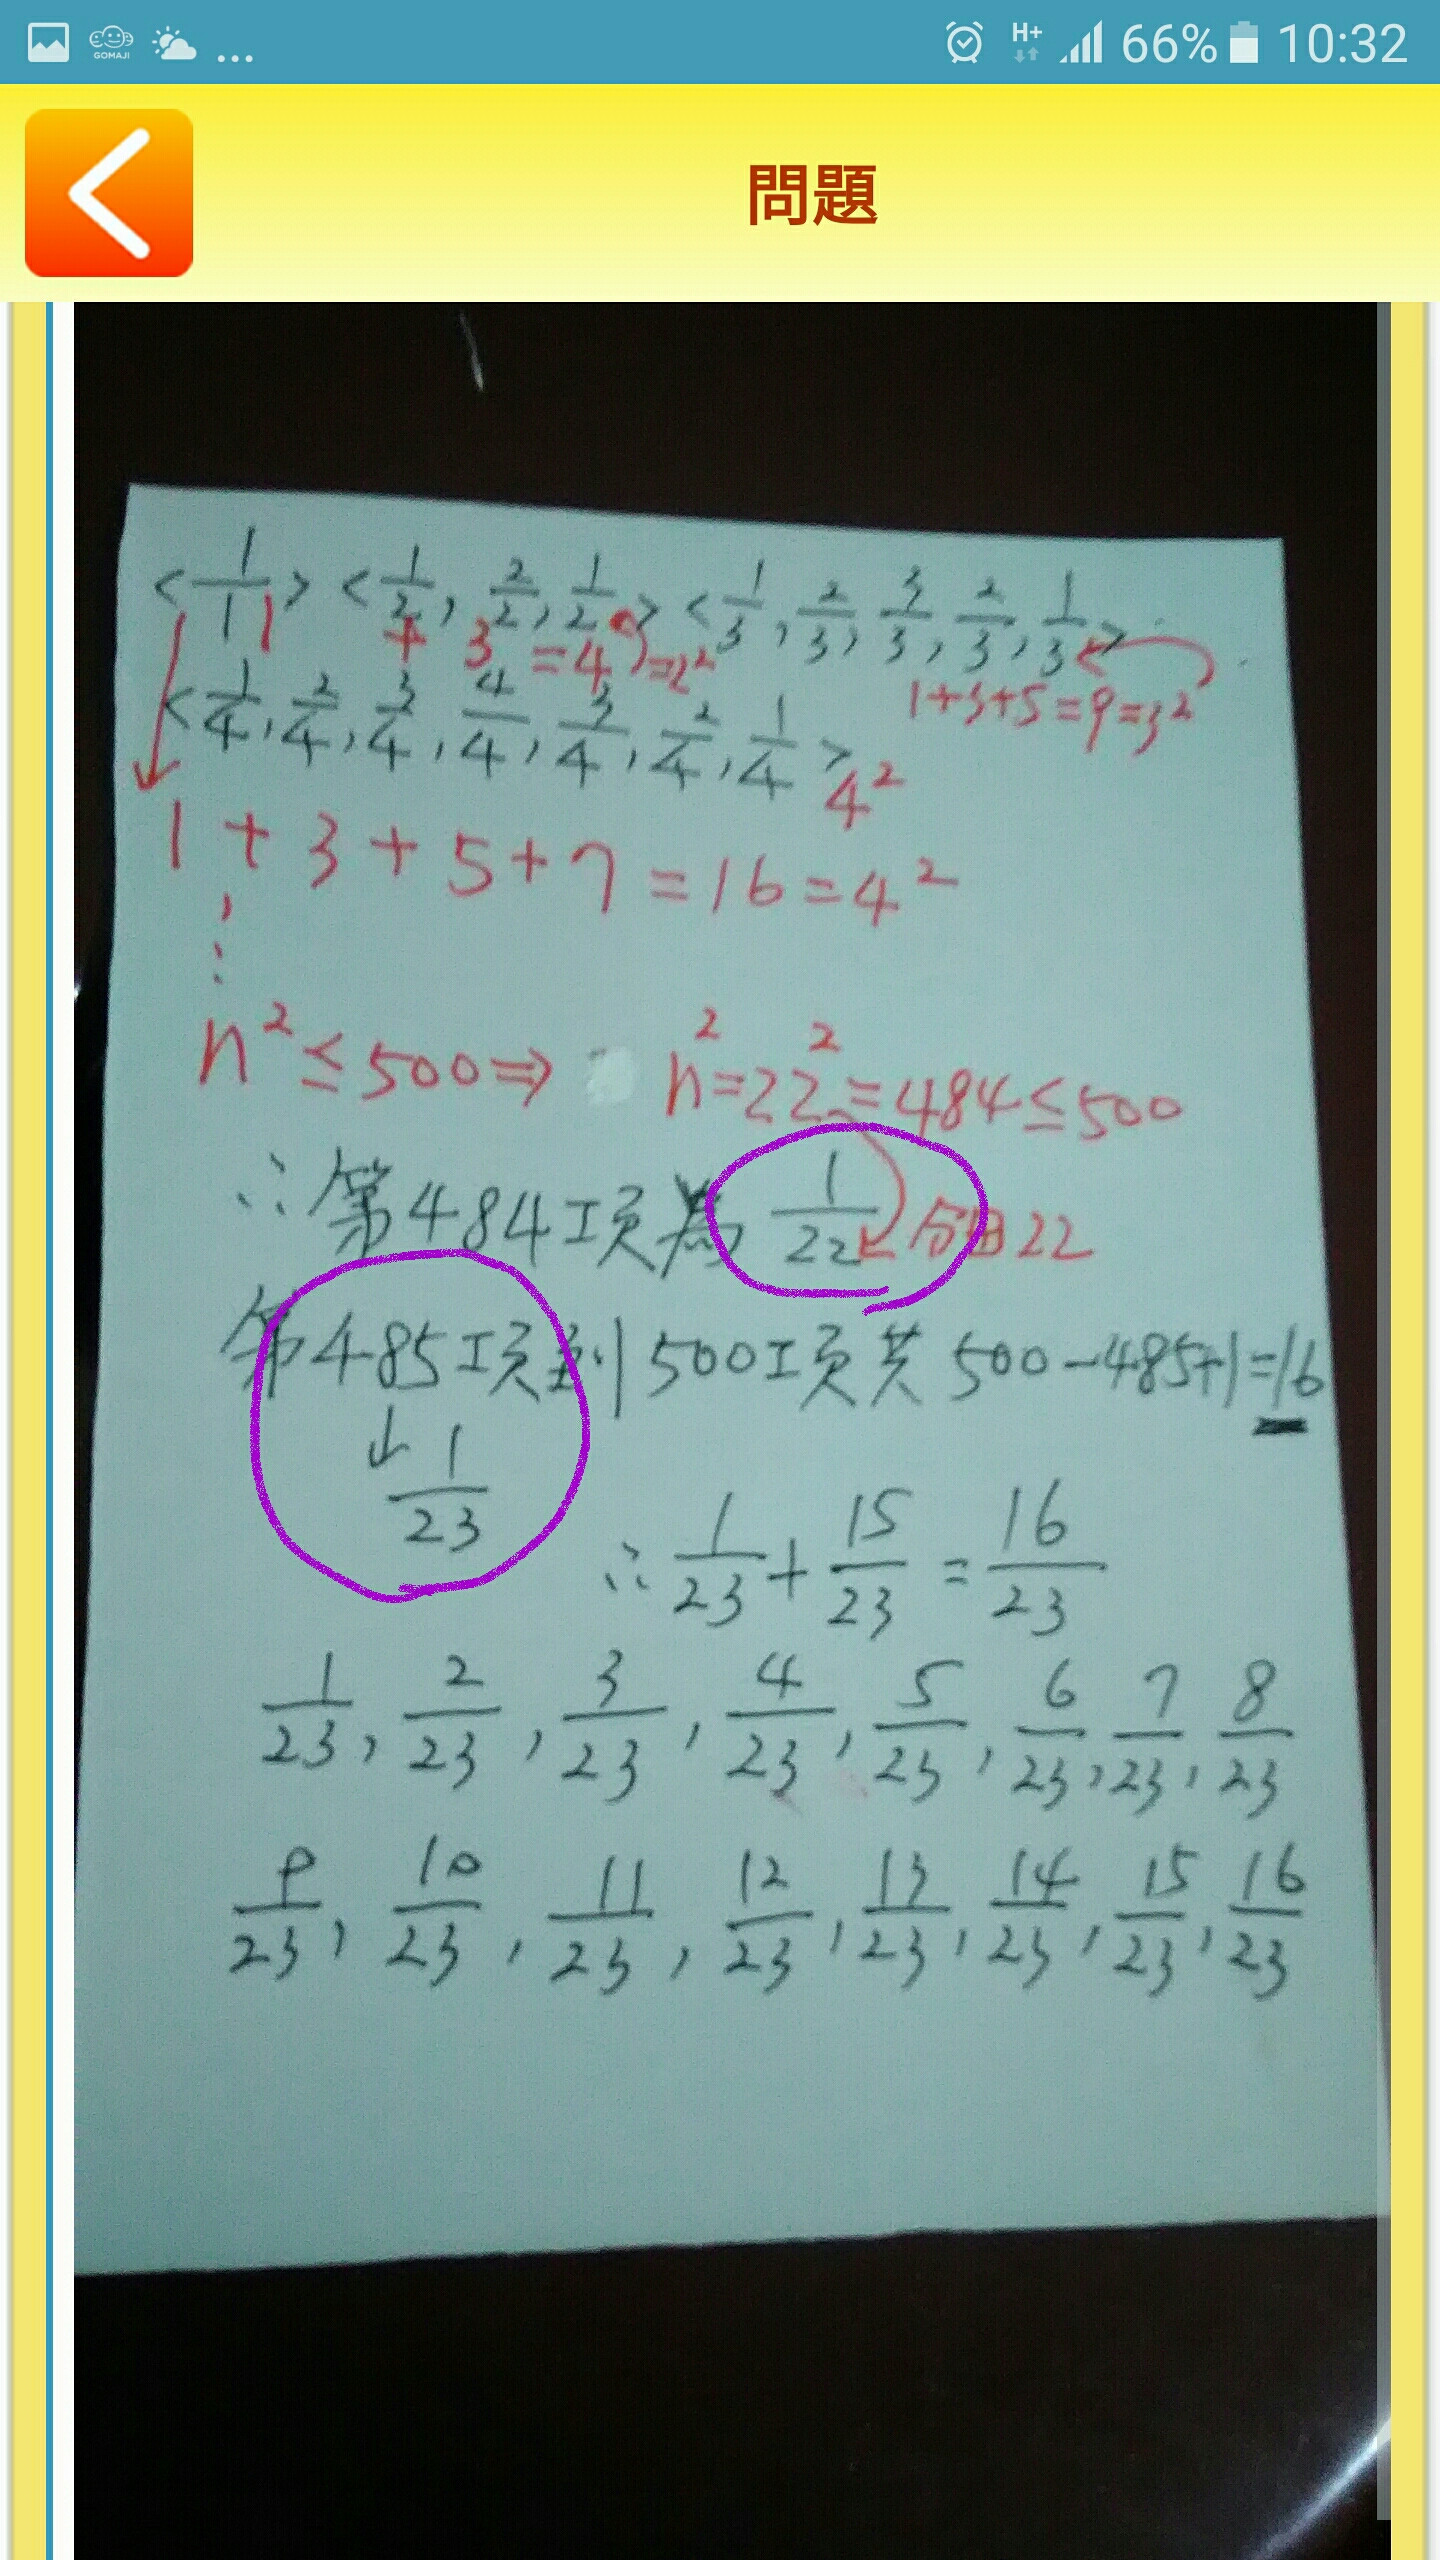 GOMAJI
H+ 66% 10:32
問題
<1/1> <1/2, 2/2, 1/2> <1/3, 2/3, 3/3, 2/3, 1/3>
1 + 3 = 4 = 2²
1+3+5=9=3²
<1/4, 2/4, 3/4, 4/4, 3/4, 2/4, 1/4>
4²
1 + 3 + 5 + 7 = 16 = 4²
⋮
n² ≤ 500 ⇒ n² = 22² = 484 ≤ 500
∴ 第484項為 1/22 分母22
第485項到500項共 500-485+1=16
↓ 1/23
∴ 1/23 + 15/23 = 16/23
1/23, 2/23, 3/23, 4/23, 5/23, 6/23, 7/23, 8/23
9/23, 10/23, 11/23, 12/23, 13/23, 14/23, 15/23, 16/23